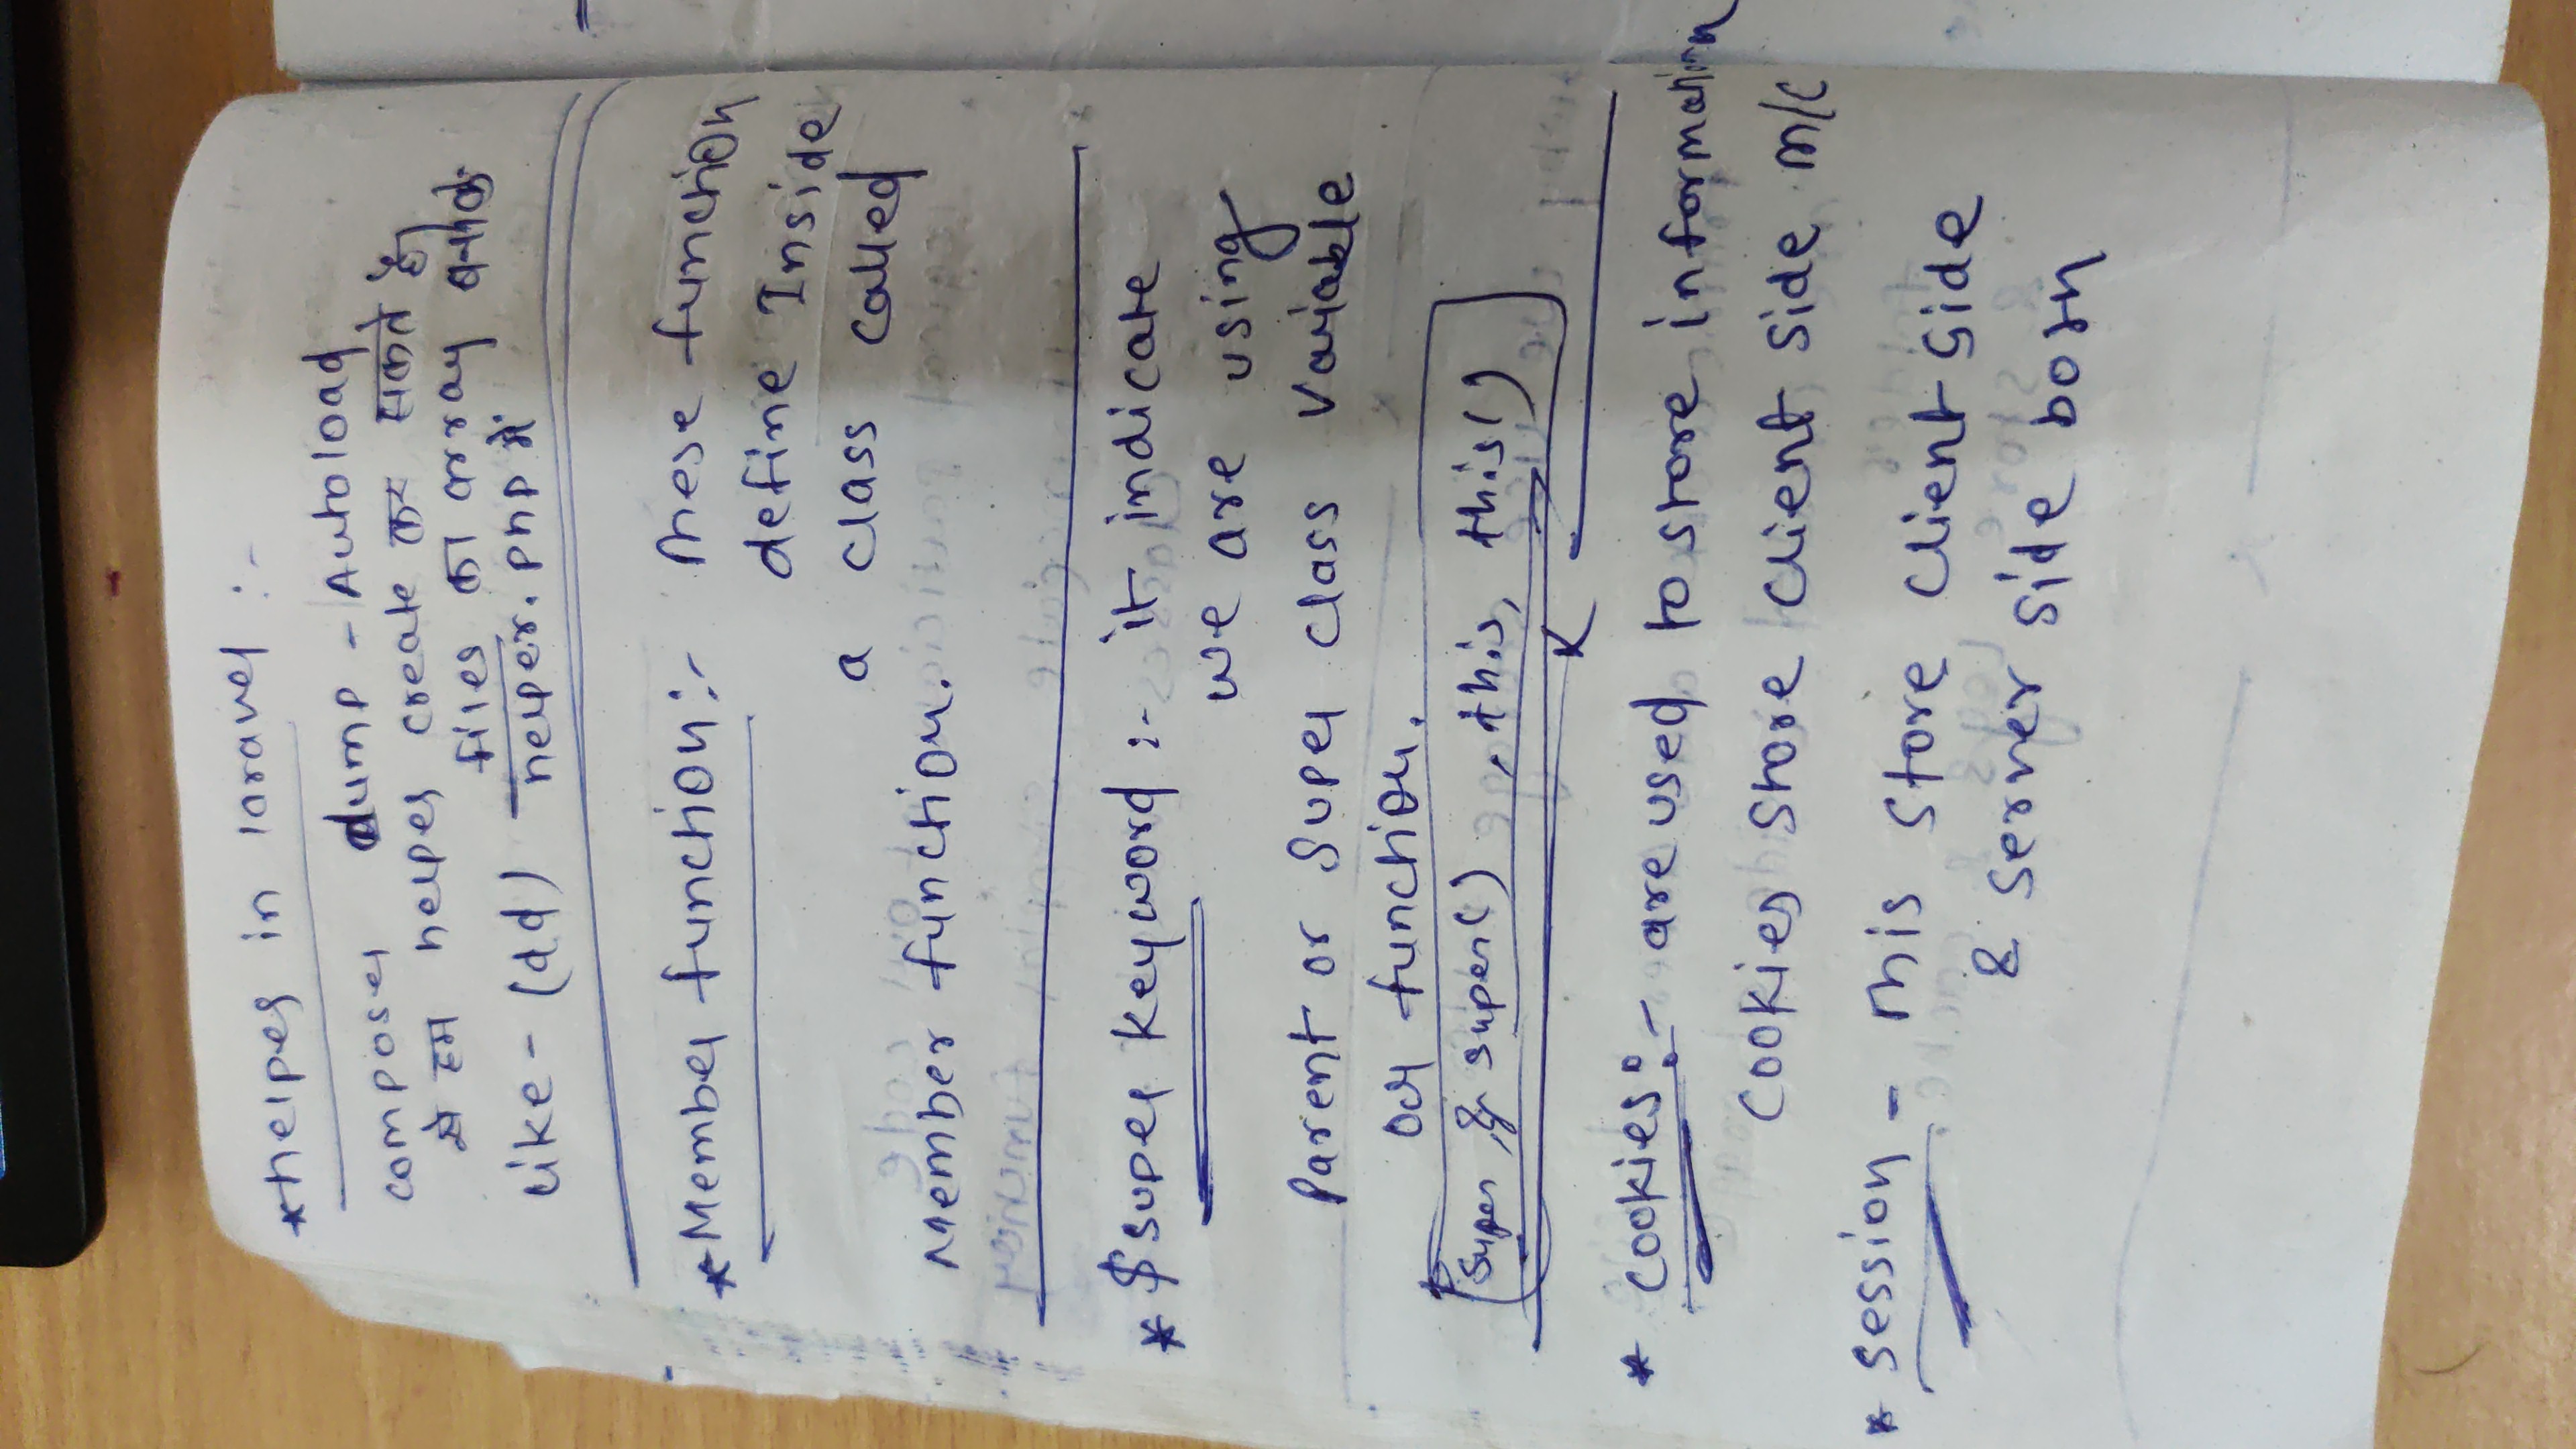 * helper in laravel :-
composer dump - Autoload
से हम helper create कर सकते है।
files का array बनाके
like - (dd) helper.php में
* Member function :- These function
define Inside
a class called
Member function.
* $super keyword :- it indicate
we are using
Parent or Super class Variable
or function.
super & super() , this, this()
* cookies :- are used to store information
Cookies store client side m/c
* session - This store client side
& server side both